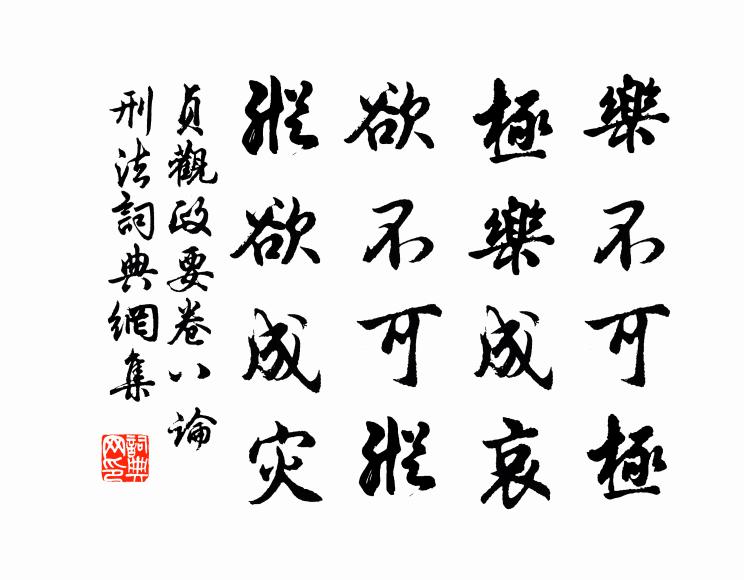 樂不可極
極樂成哀
欲不可縱
縱欲成災
貞觀政要卷八論
刑法詞典網集
詞典網印